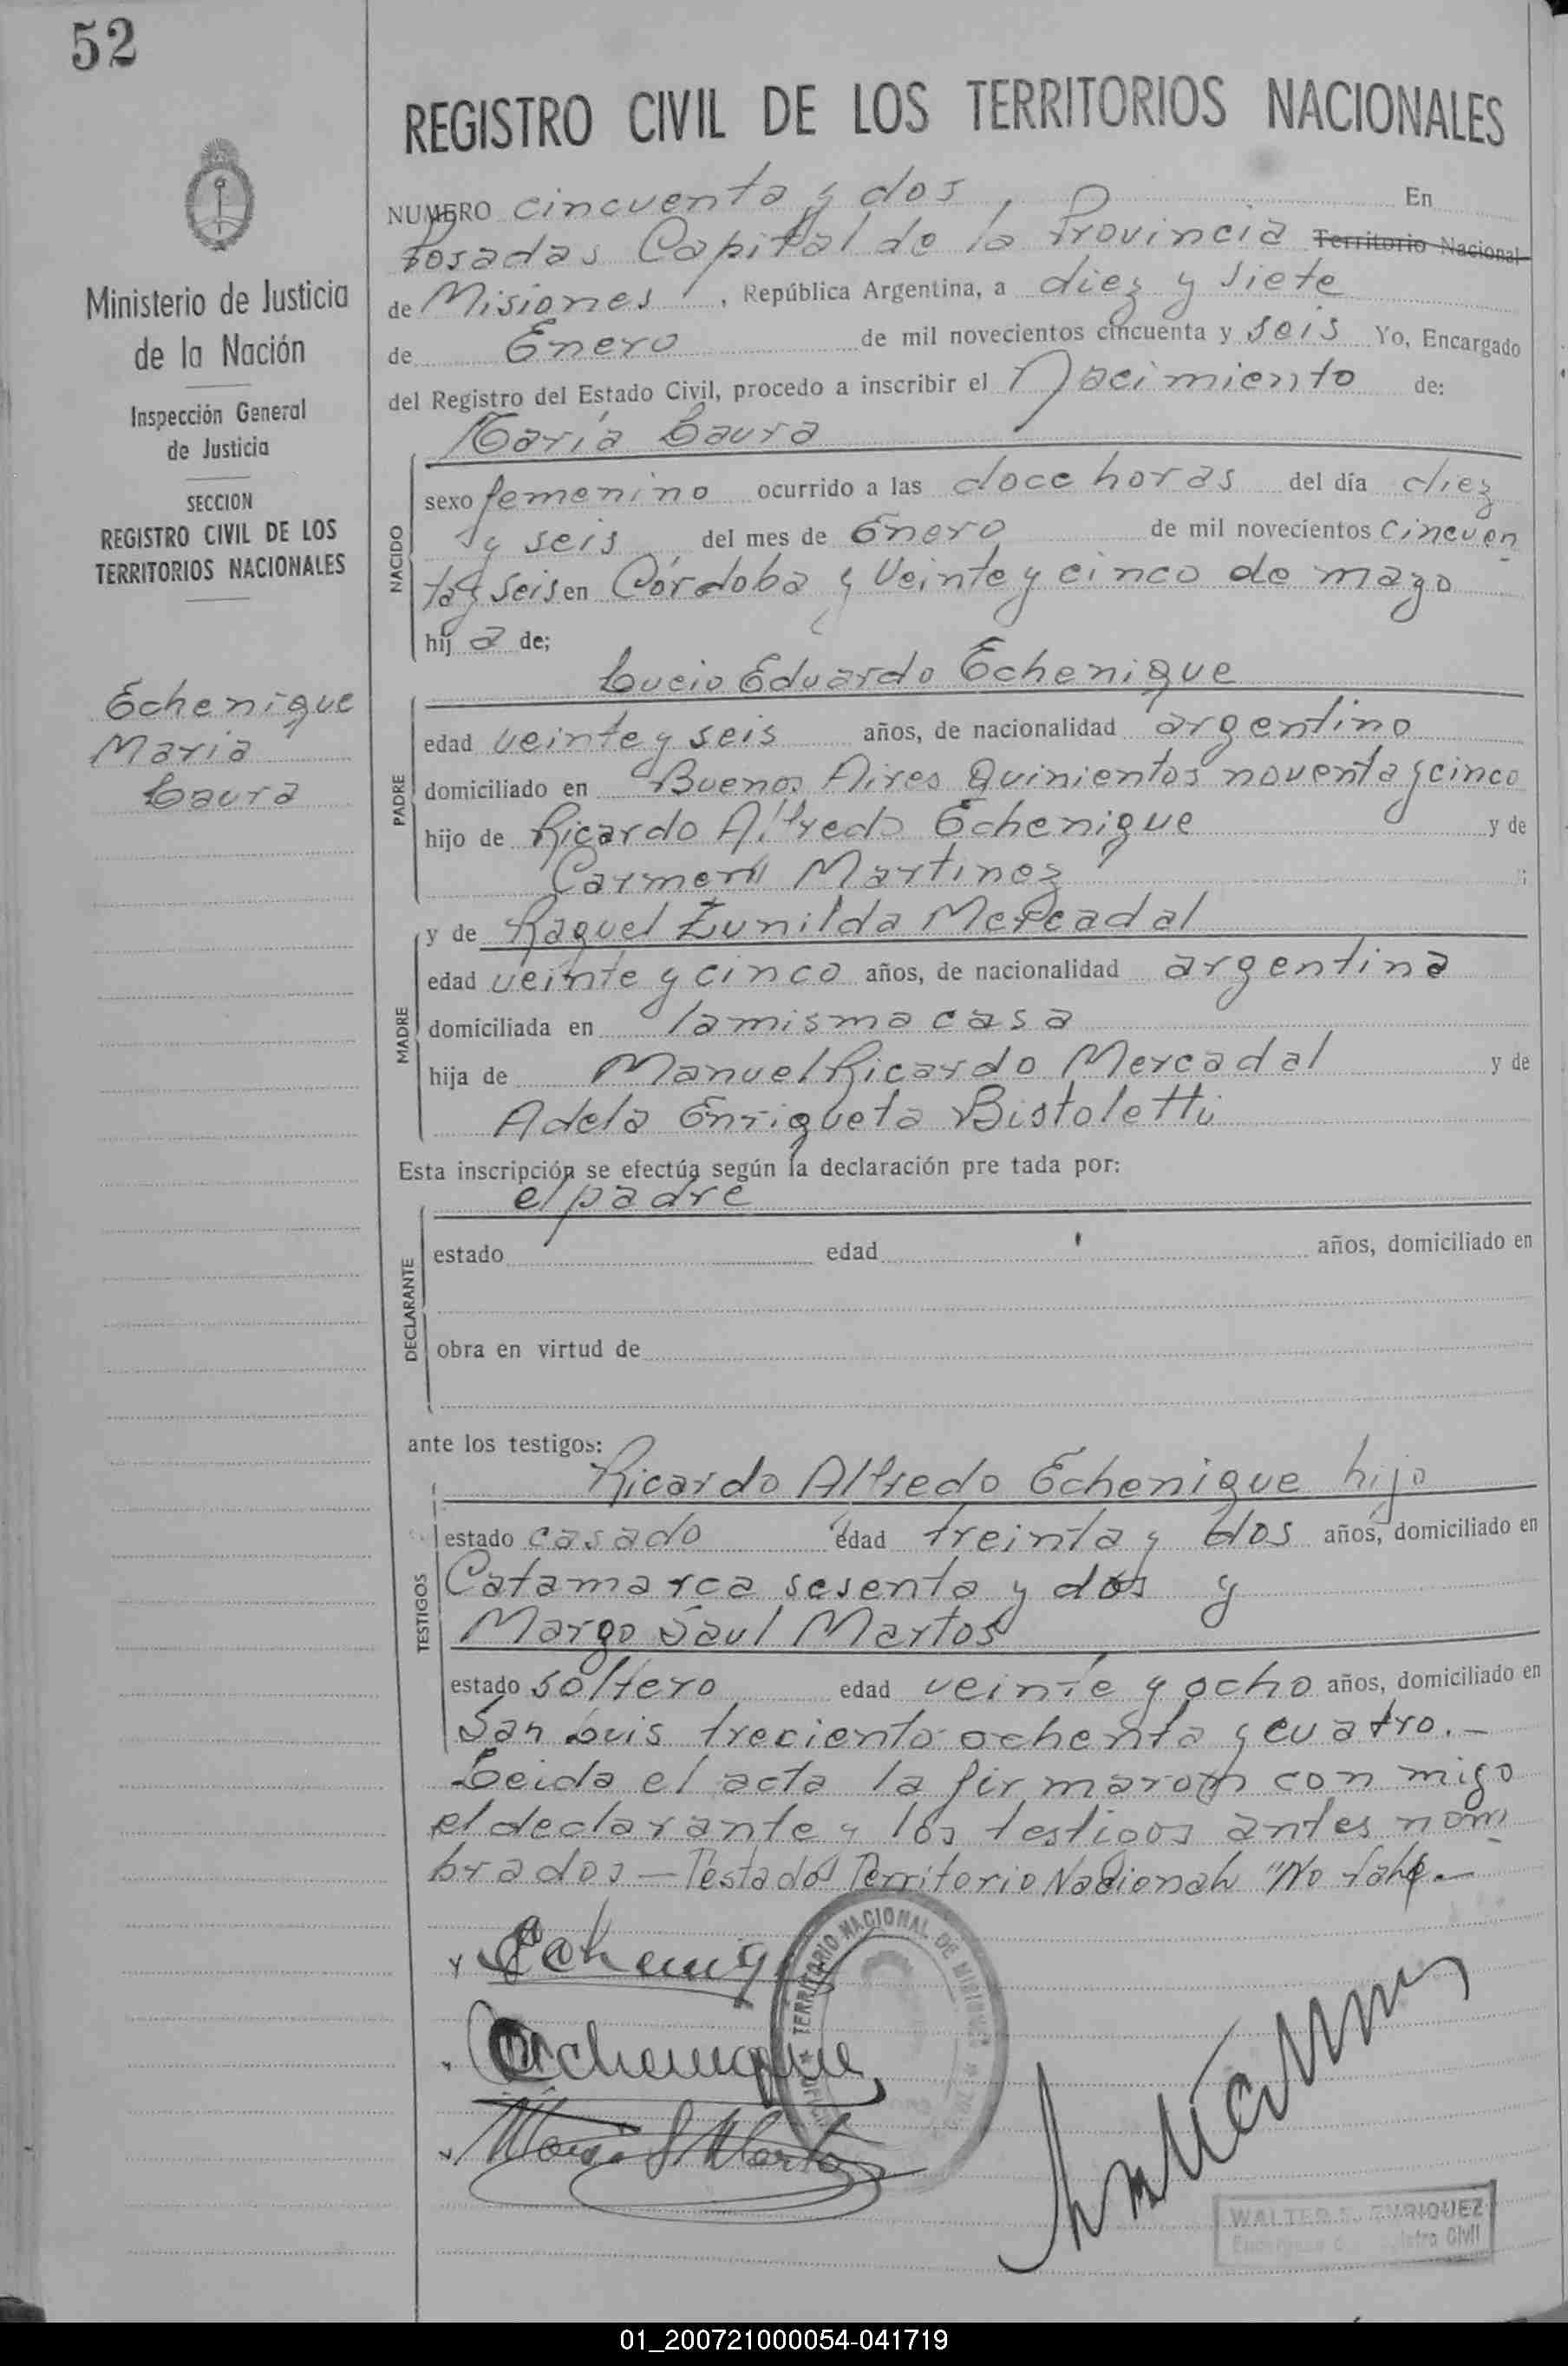 52
REGISTRO CIVIL DE LOS TERRITORIOS NACIONALES
Ministerio de Justicia
de la Nación
Inspección General
de Justicia
SECCION
REGISTRO CIVIL DE LOS
TERRITORIOS NACIONALES
Echenique
Maria
Laura
NUMERO cincuenta y dos En
Posadas Capital de la Provincia Territorio Nacional
de Misiones, República Argentina, a diez y siete
de Enero de mil novecientos cincuenta y seis Yo, Encargado
del Registro del Estado Civil, procedo a inscribir el Nacimiento de:
María Laura
NACIDO
sexo femenino ocurrido a las doce horas del día diez
y seis del mes de Enero de mil novecientos cincuen
ta y seis en Córdoba y Veinte y cinco de mayo
hij a de;
Lucio Eduardo Echenique
PADRE
edad veinte y seis años, de nacionalidad argentino
domiciliado en Buenos Aires quinientos noventa y cinco
hijo de Ricardo Alfredo Echenique y de
Carmen Martinez
MADRE
y de Raquel Zunilda Mercadal
edad veinte y cinco años, de nacionalidad argentina
domiciliada en la misma casa
hija de Manuel Ricardo Mercadal y de
Adela Enriqueta Bistoletti
Esta inscripción se efectúa según la declaración pre tada por:
el padre
DECLARANTE
estado edad años, domiciliado en
obra en virtud de
ante los testigos:
Ricardo Alfredo Echenique hijo
TESTIGOS
estado casado edad treinta y dos años, domiciliado en
Catamarca sesenta y dos y
Margo Saul Martos
estado soltero edad veinte y ocho años, domiciliado en
San Luis treciento ochenta y cuatro.-
Leida el acta la firmaron con migo
el declarante y los testigos antes nom
brados - Testados Territorio Nacional "No
Echenique
TERRITORIO NACIONAL DE MISIONES
WALTER S. ENRIQUEZ
01_200721000054-041719